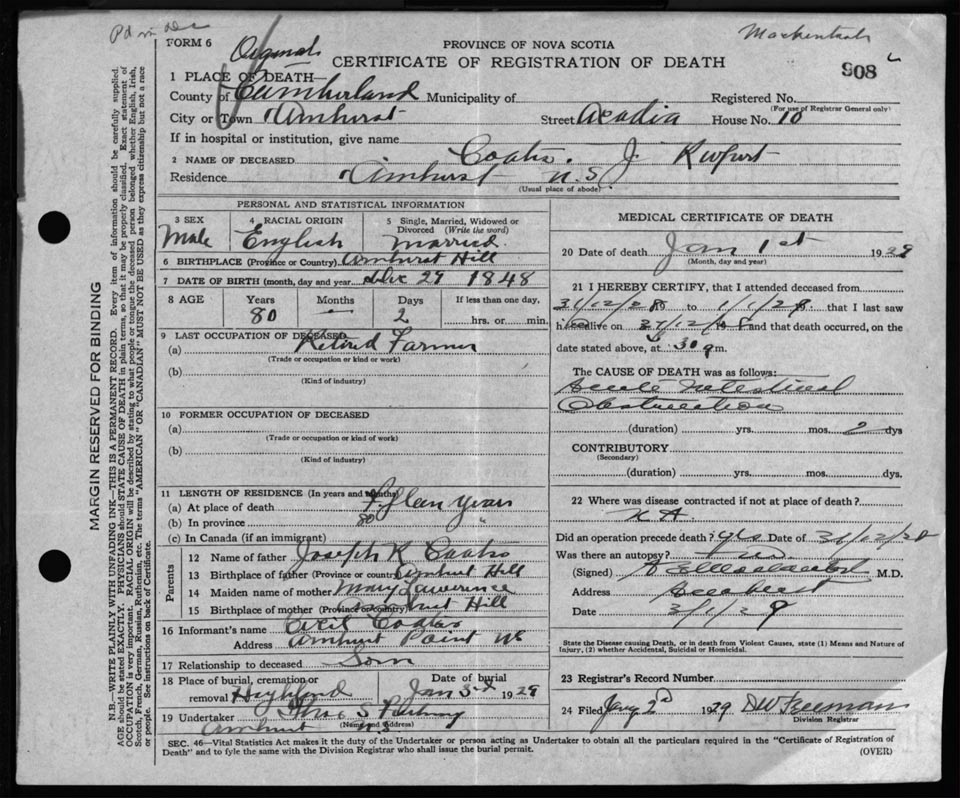 Original
FORM 6
PROVINCE OF NOVA SCOTIA
CERTIFICATE OF REGISTRATION OF DEATH
908
1 PLACE OF DEATH—
County of Cumberland Municipality of Registered No.
(For use of Registrar General only)
City or Town Amherst Street Acadia House No. 10
If in hospital or institution, give name
2 NAME OF DECEASED Coats. J.
Residence Amherst N.S
(Usual place of abode)
PERSONAL AND STATISTICAL INFORMATION
3 SEX Male
4 RACIAL ORIGIN English
5 Single, Married, Widowed or Divorced (Write the word) Married.
6 BIRTHPLACE (Province or Country) Amherst Hill
7 DATE OF BIRTH (month, day and year) Dec 29 1848
8 AGE Years Months Days If less than one day,
80 — 2 hrs. or min.
9 LAST OCCUPATION OF DECEASED
(a) Retired Farmer
(Trade or occupation or kind of work)
(b)
(Kind of industry)
10 FORMER OCCUPATION OF DECEASED
(a)
(Trade or occupation or kind of work)
(b)
(Kind of industry)
11 LENGTH OF RESIDENCE (In years and months)
(a) At place of death Fifteen years
(b) In province 80 "
(c) In Canada (if an immigrant)
Parents
12 Name of father Joseph R Coats
13 Birthplace of father (Province or country) Amherst Hill
14 Maiden name of mother Mary Lawrence
15 Birthplace of mother (Province or country) Amherst Hill
16 Informant's name Cecil Coats
Address Amherst Point
17 Relationship to deceased Son
18 Place of burial, cremation or removal Highland
Date of burial Jan 3rd 1929
19 Undertaker S
(Name and Address)
Amherst N.S
MEDICAL CERTIFICATE OF DEATH
20 Date of death Jan 1st 1929
(Month, day and year)
21 I HEREBY CERTIFY, that I attended deceased from
31/12/28 to 1/1/29 that I last saw
alive on 31/12/28 and that death occurred, on the
date stated above, at 30 m.
The CAUSE OF DEATH was as follows:
Acute Intestinal
Obstruction
(duration) yrs. mos. 2 dys
CONTRIBUTORY
(Secondary)
(duration) yrs. mos. dys.
22 Where was disease contracted if not at place of death?
Did an operation precede death? yes Date of 31/12/28
Was there an autopsy? no
(Signed) M.D.
Address Amherst
Date 3/1/29
State the Disease causing Death, or in death from Violent Causes, state (1) Means and Nature of Injury, (2) whether Accidental, Suicidal or Homicidal.
23 Registrar's Record Number
24 Filed Jany 2d 1929 DW Freeman
Division Registrar
SEC. 46—Vital Statistics Act makes it the duty of the Undertaker or person acting as Undertaker to obtain all the particulars required in the "Certificate of Registration of
Death" and to fyle the same with the Division Registrar who shall issue the burial permit.
(OVER)
MARGIN RESERVED FOR BINDING
N.B.—WRITE PLAINLY WITH UNFADING INK—THIS IS A PERMANENT RECORD. Every item of information should be carefully supplied.
AGE should be stated EXACTLY. PHYSICIANS should STATE CAUSE OF DEATH in plain terms, so that it may be properly classified. Exact statement of
OCCUPATION is very important. RACIAL ORIGIN will be described by stating to what people or tongue the deceased person belonged whether English, Irish,
Scotch, French, German, Russian, Ruthenian, etc. The terms "AMERICAN" OR "CANADIAN" MUST NOT BE USED as they express citizenship but not a race
or people. See instructions on back of Certificate.